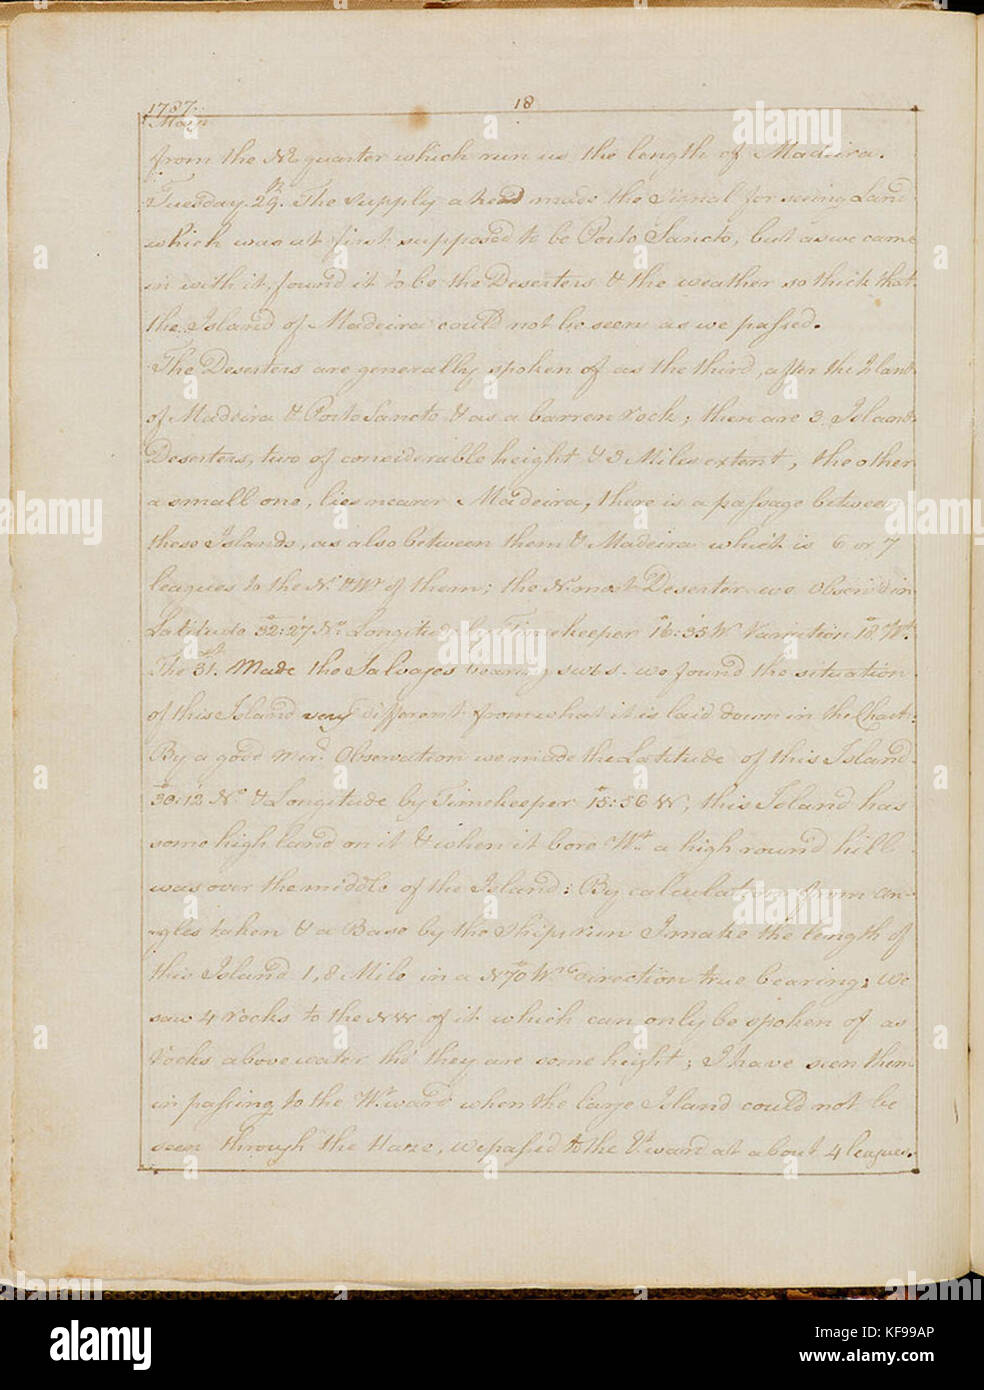 1787.
May
18
from the Nº quarter which run us the length of Madeira.
Tuesday. 29. The Supply ahead made the Signal for seeing Land
which was at first supposed to be Porto Sancto, but as we came
in with it, found it to be the Deserters & the weather so thick that
the Island of Madeira could not be seen as we passed.
The Deserters are generally spoken of as the third, after the Island
of Madeira & Porto Sancto & as a barren rock; there are 3 Island
Deserters, two of considerable height & 3 Miles extent, the other
a small one, lies nearer Madeira, there is a passage between
these Islands, as also between them & Madeira which is 6 or 7
leagues to the Nº. & Wd of them; the Nº.most Deserter we Observ'd in
Latitude 32º:27 Nº. Longitude by Timekeeper 16º:35 W Variation 18º. Wt.
The 31st. Made the Salvages bearing SWbS. we found the situation
of this Island very different from what it is laid down in the Chart:
By a good Merd. Observation we made the Latitude of this Island
30º:12 Nº & Longitude by Timekeeper 15º:56 W, this Island has
some high land on it & when it bore Wt. a high round hill
was over the middle of the Island: By calculation from an-
gles taken & a Base by the Ships run I make the length of
this Island 1,8 Mile in a N 70º W direction true bearing; We
saw 4 rocks to the NW of it which can only be spoken of as
rocks above water tho' they are some height; I have seen them
in passing to the Wt.ward when the large Island could not be
seen through the Haze, we passed to the Et.ward at about 4 leagues.
alamy
a
alamy stock photo
KF99AP
www.alamy.com